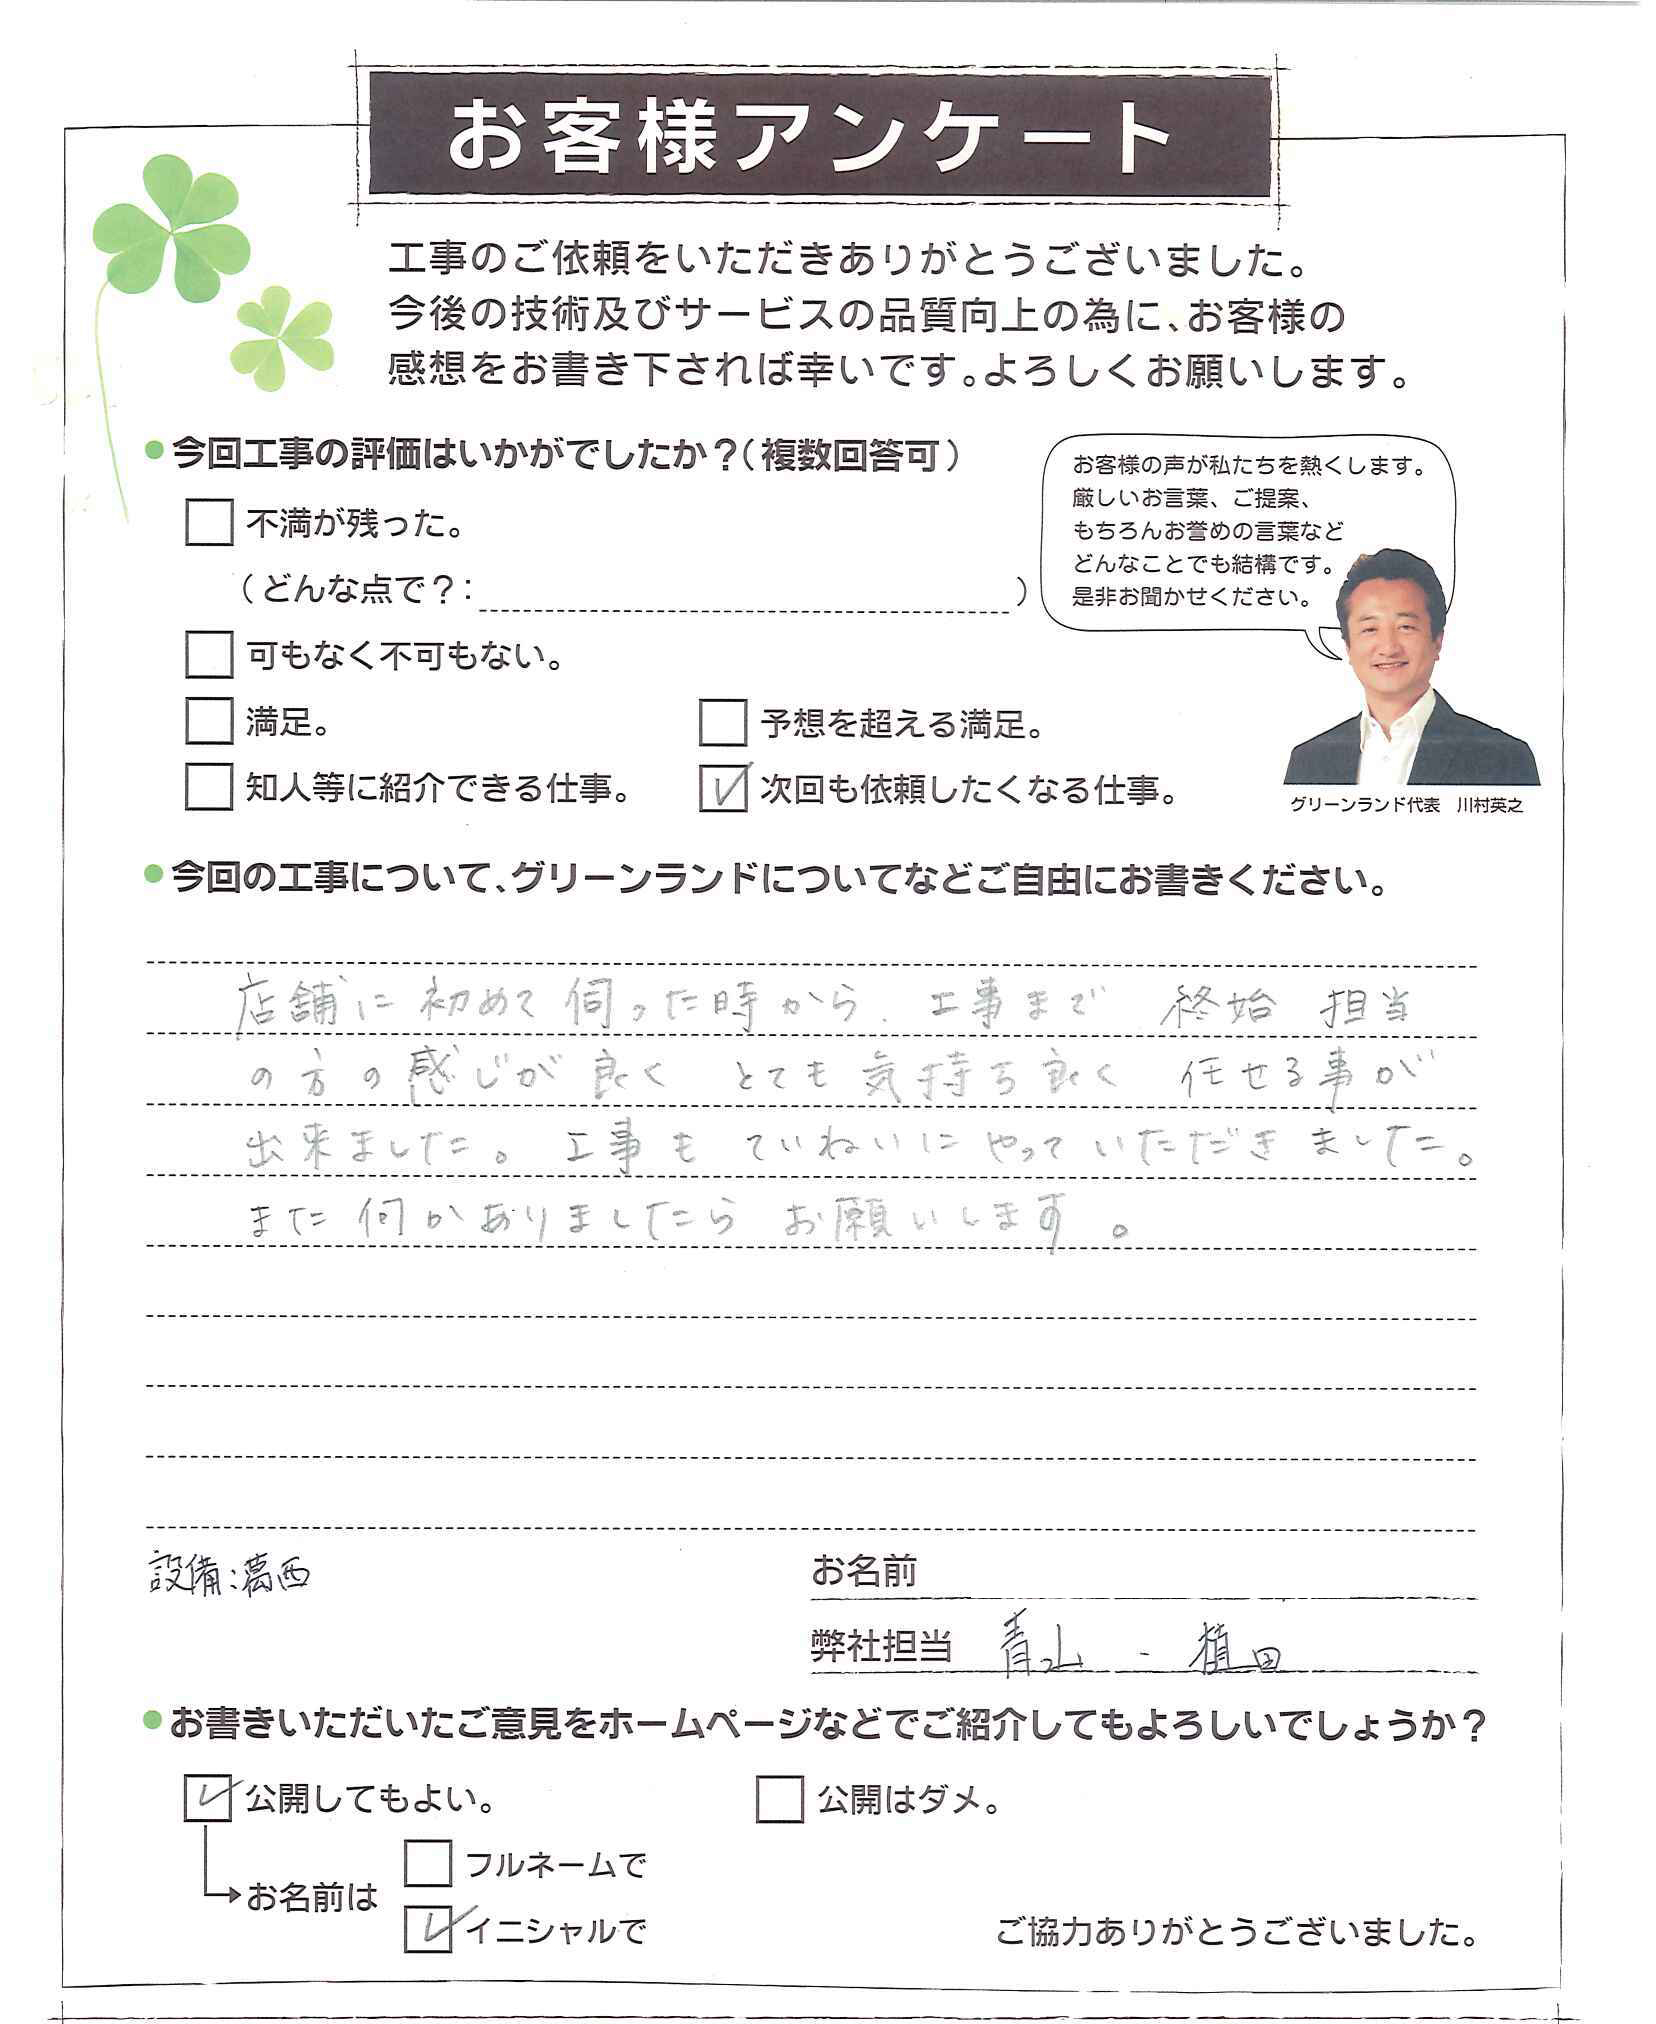 お客様アンケート
工事のご依頼をいただきありがとうございました。
今後の技術及びサービスの品質向上の為に、お客様の
感想をお書き下されば幸いです。よろしくお願いします。
●今回工事の評価はいかがでしたか？（複数回答可）
不満が残った。
（どんな点で？：　　　）
可もなく不可もない。
満足。
予想を超える満足。
知人等に紹介できる仕事。
次回も依頼したくなる仕事。
お客様の声が私たちを熱くします。
厳しいお言葉、ご提案、
もちろんお誉めの言葉など
どんなことでも結構です。
是非お聞かせください。
グリーンランド代表　川村英之
●今回の工事について、グリーンランドについてなどご自由にお書きください。
店舗に初めて伺った時から、工事まで 終始 担当
の方の感じが良く とても気持ち良く 任せる事が
出来ました。工事も ていねいにやっていただきました。
また何かありましたら お願いします。
設備：葛西
お名前
弊社担当　青山 ・ 植田
●お書きいただいたご意見をホームページなどでご紹介してもよろしいでしょうか？
公開してもよい。
公開はダメ。
お名前は
フルネームで
イニシャルで
ご協力ありがとうございました。